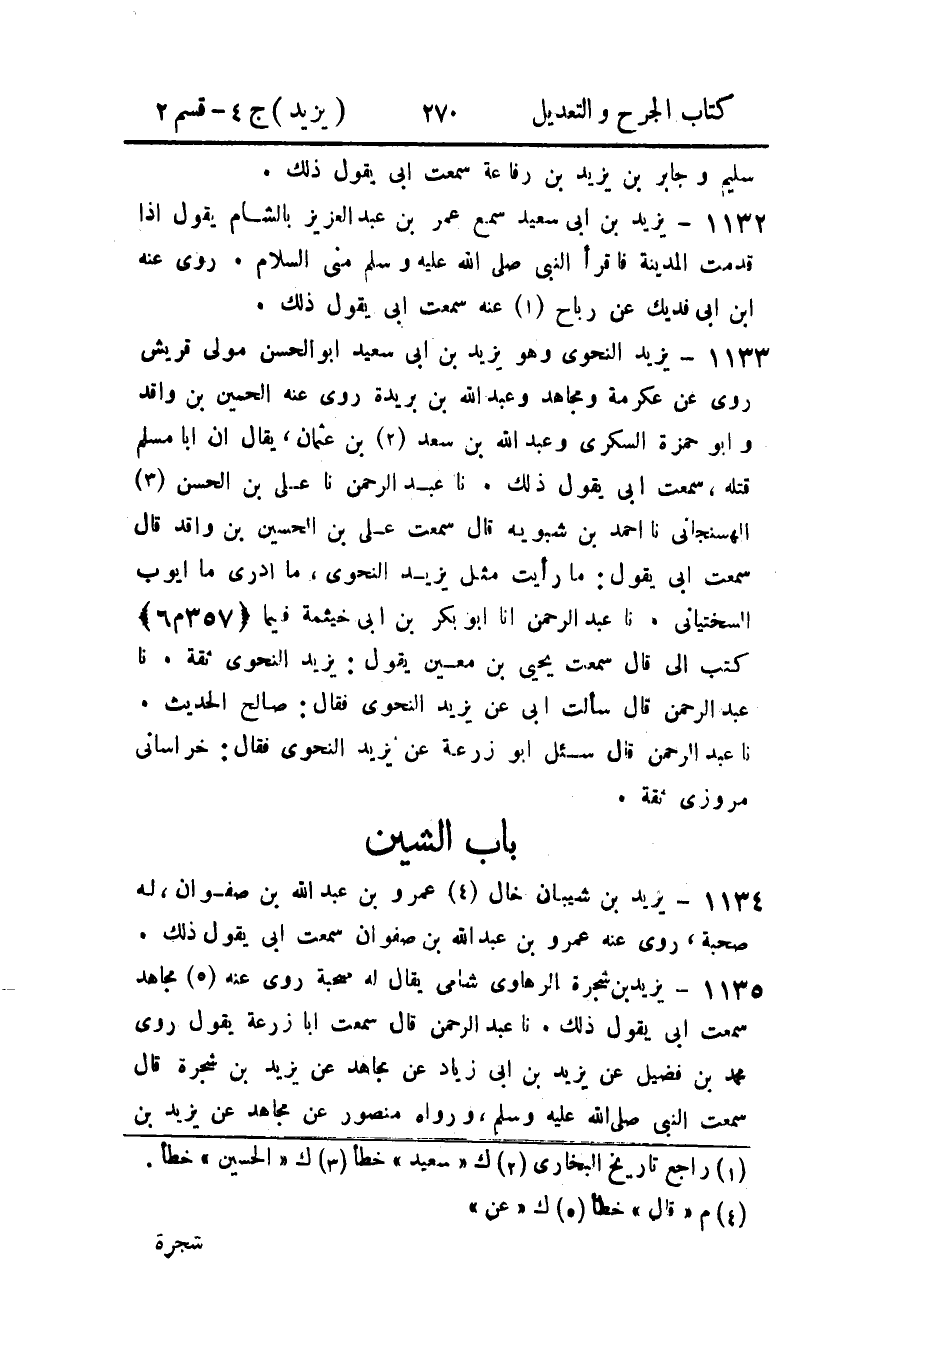 كتاب الجرح والتعديل ٢٧٠ (يزيد) ج ٤ - قسم ٢
سليم وجابر بن يزيد بن رفاعة سمعت ابى يقول ذلك .
١١٣٢ - يزيد بن ابى سعيد سمع عمر بن عبد العزيز بالشام يقول اذا
قدمت المدينة فاقرأ النبى صلى الله عليه وسلم منى السلام . روى عنه
ابن ابى فديك عن رباح (١) عنه سمعت ابى يقول ذلك .
١١٣٣ - يزيد النحوى وهو يزيد بن ابى سعيد ابو الحسن مولى قريش
روى عن عكرمة ومجاهد وعبد الله بن بريدة روى عنه الحسين بن واقد
وابو حمزة السكرى وعبد الله بن سعد (٢) بن عثمان، يقال ان ابا مسلم
قتله، سمعت ابى يقول ذلك . نا عبد الرحمن نا على بن الحسن (٣)
الهسنجانى نا احمد بن شبويه قال سمعت على بن الحسين بن واقد قال
سمعت ابى يقول: ما رأيت مثل يزيد النحوى، ما ادرى ما ايوب
السختيانى . نا عبد الرحمن انا ابو بكر بن ابى خيثمة فيما (٣٥٧م٦)
كتب الى قال سمعت يحيى بن معين يقول: يزيد النحوى ثقة . نا
عبد الرحمن قال سألت ابى عن يزيد النحوى فقال: صالح الحديث .
نا عبد الرحمن قال سئل ابو زرعة عن يزيد النحوى فقال: خراسانى
مروزى ثقة .
باب الشين
١١٣٤ - يزيد بن شيبان خال (٤) عمرو بن عبد الله بن صفوان، له
صحبة، روى عنه عمرو بن عبد الله بن صفوان سمعت ابى يقول ذلك .
١١٣٥ - يزيد بن شجرة الرهاوى شامى يقال له صحبة روى عنه (٥) مجاهد
سمعت ابى يقول ذلك . نا عبد الرحمن قال سمعت ابا زرعة يقول روى
محمد بن فضيل عن يزيد بن ابى زياد عن مجاهد عن يزيد بن شجرة قال
سمعت النبى صلى الله عليه وسلم، ورواه منصور عن مجاهد عن يزيد بن
(١) راجع تاريخ البخارى (٢) ك « سعيد » خطأ (٣) ك « الحسين » خطأ .
(٤) م « قال » خطأ (٥) ك « عن »
شجرة